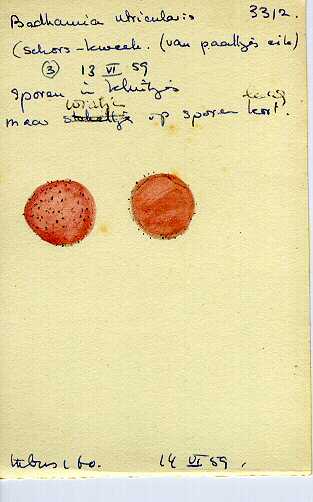 Badhamia utricularis 3312.
(schors-kweek. (van paaltjes eik)
③ 13 VI 59
Sporen in kluitjes
wratjes
maar op sporen kort.
14 VI 59.